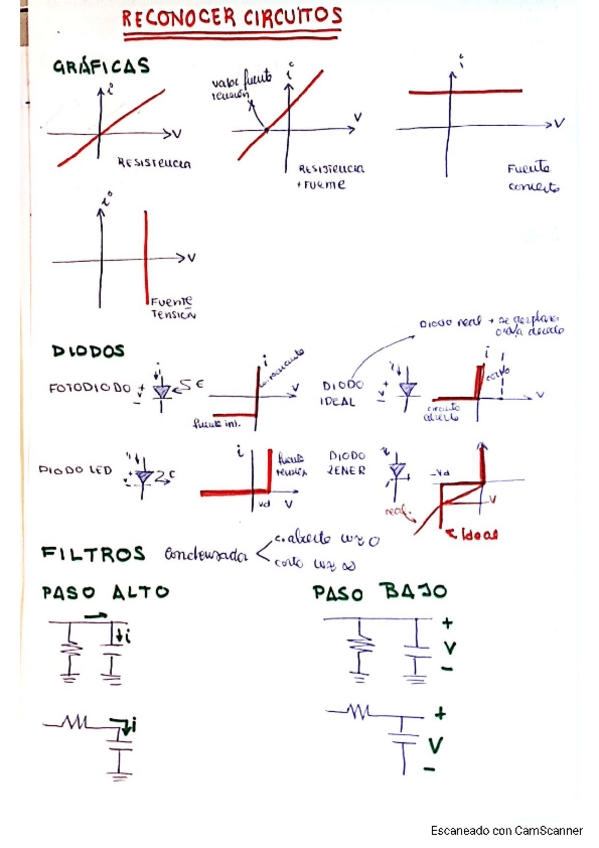 RECONOCER CIRCUITOS
GRÁFICAS
i
V
RESISTENCIA
valor fuente
tensión
i
V
RESISTENCIA
+ FUENTE
i
V
Fuente
corriente
i
V
FUENTE
TENSIÓN
DIODOS
Diodo real → se desplaza
FOTODIODO
+
-
i
i
V
fuente int.
DIODO
IDEAL
+
-
i
i
corto
V
circuito
abierto
DIODO LED
i
fuente
tensión
vd
V
DIODO
ZENER
-Vd
V
real
ideal
FILTROS Condensador
c. abierto w≈0
corto w≈∞
PASO ALTO
PASO BAJO
i
+
V
-
i
+
V
-
Escaneado con CamScanner